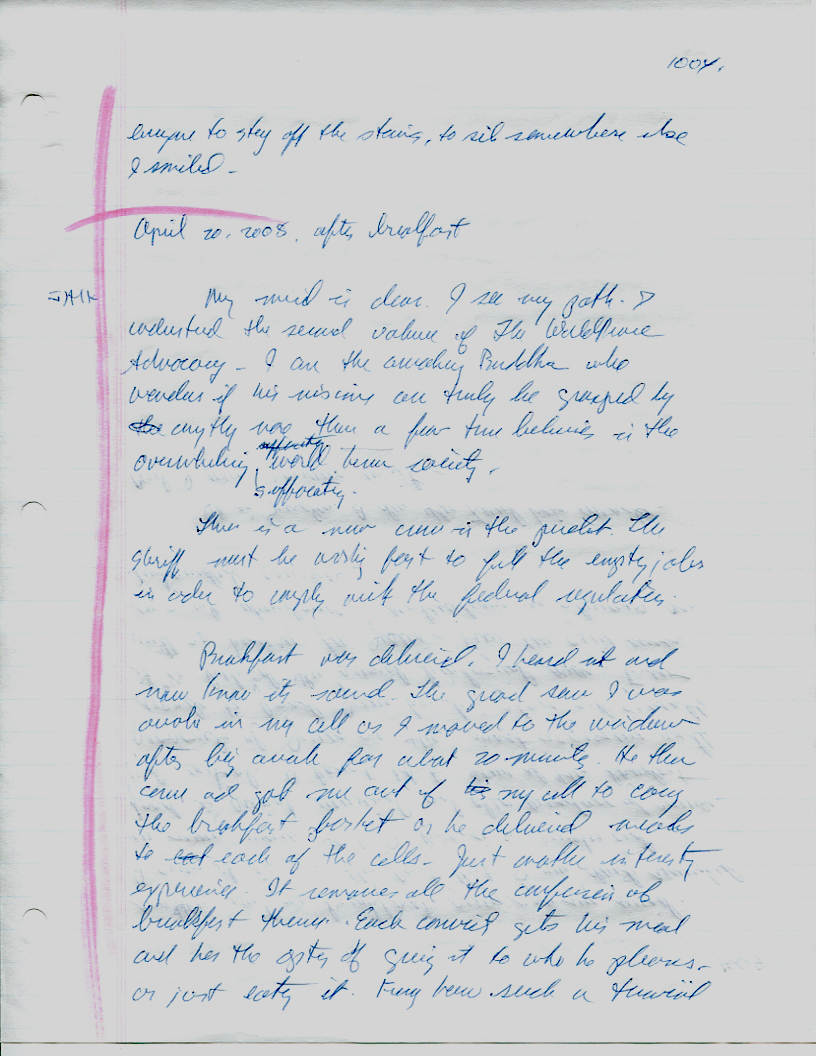 1004.
to stay off the stairs, to sit somewhere else
I smiled -
April 20, 2008, after breakfast
My mind is clear. I see my path. I
understand the second volume of The
Advocacy - I am the Buddha who
wonders if his can truly be grasped by
the anything more than a few true believers in the
overwhelming world society.
suffocating.
There is a new crew in the The
Sheriff must be working fast to fill the empty jobs
in order to comply with the federal regulations.
Breakfast was delivered. I heard it and
now know its sound. The guard saw I was
awake in my cell as I moved to the window
after being awake for about 20 minutes. He then
came and got me out of his my cell to carry
the breakfast basket as he delivered meals
to eat each of the cells. Just another interesting
experience. It removes all the confusion of
breakfast Each convict gets his meal
and has the option of giving it to who he pleases -
or just eating it. Funny how such a trivial